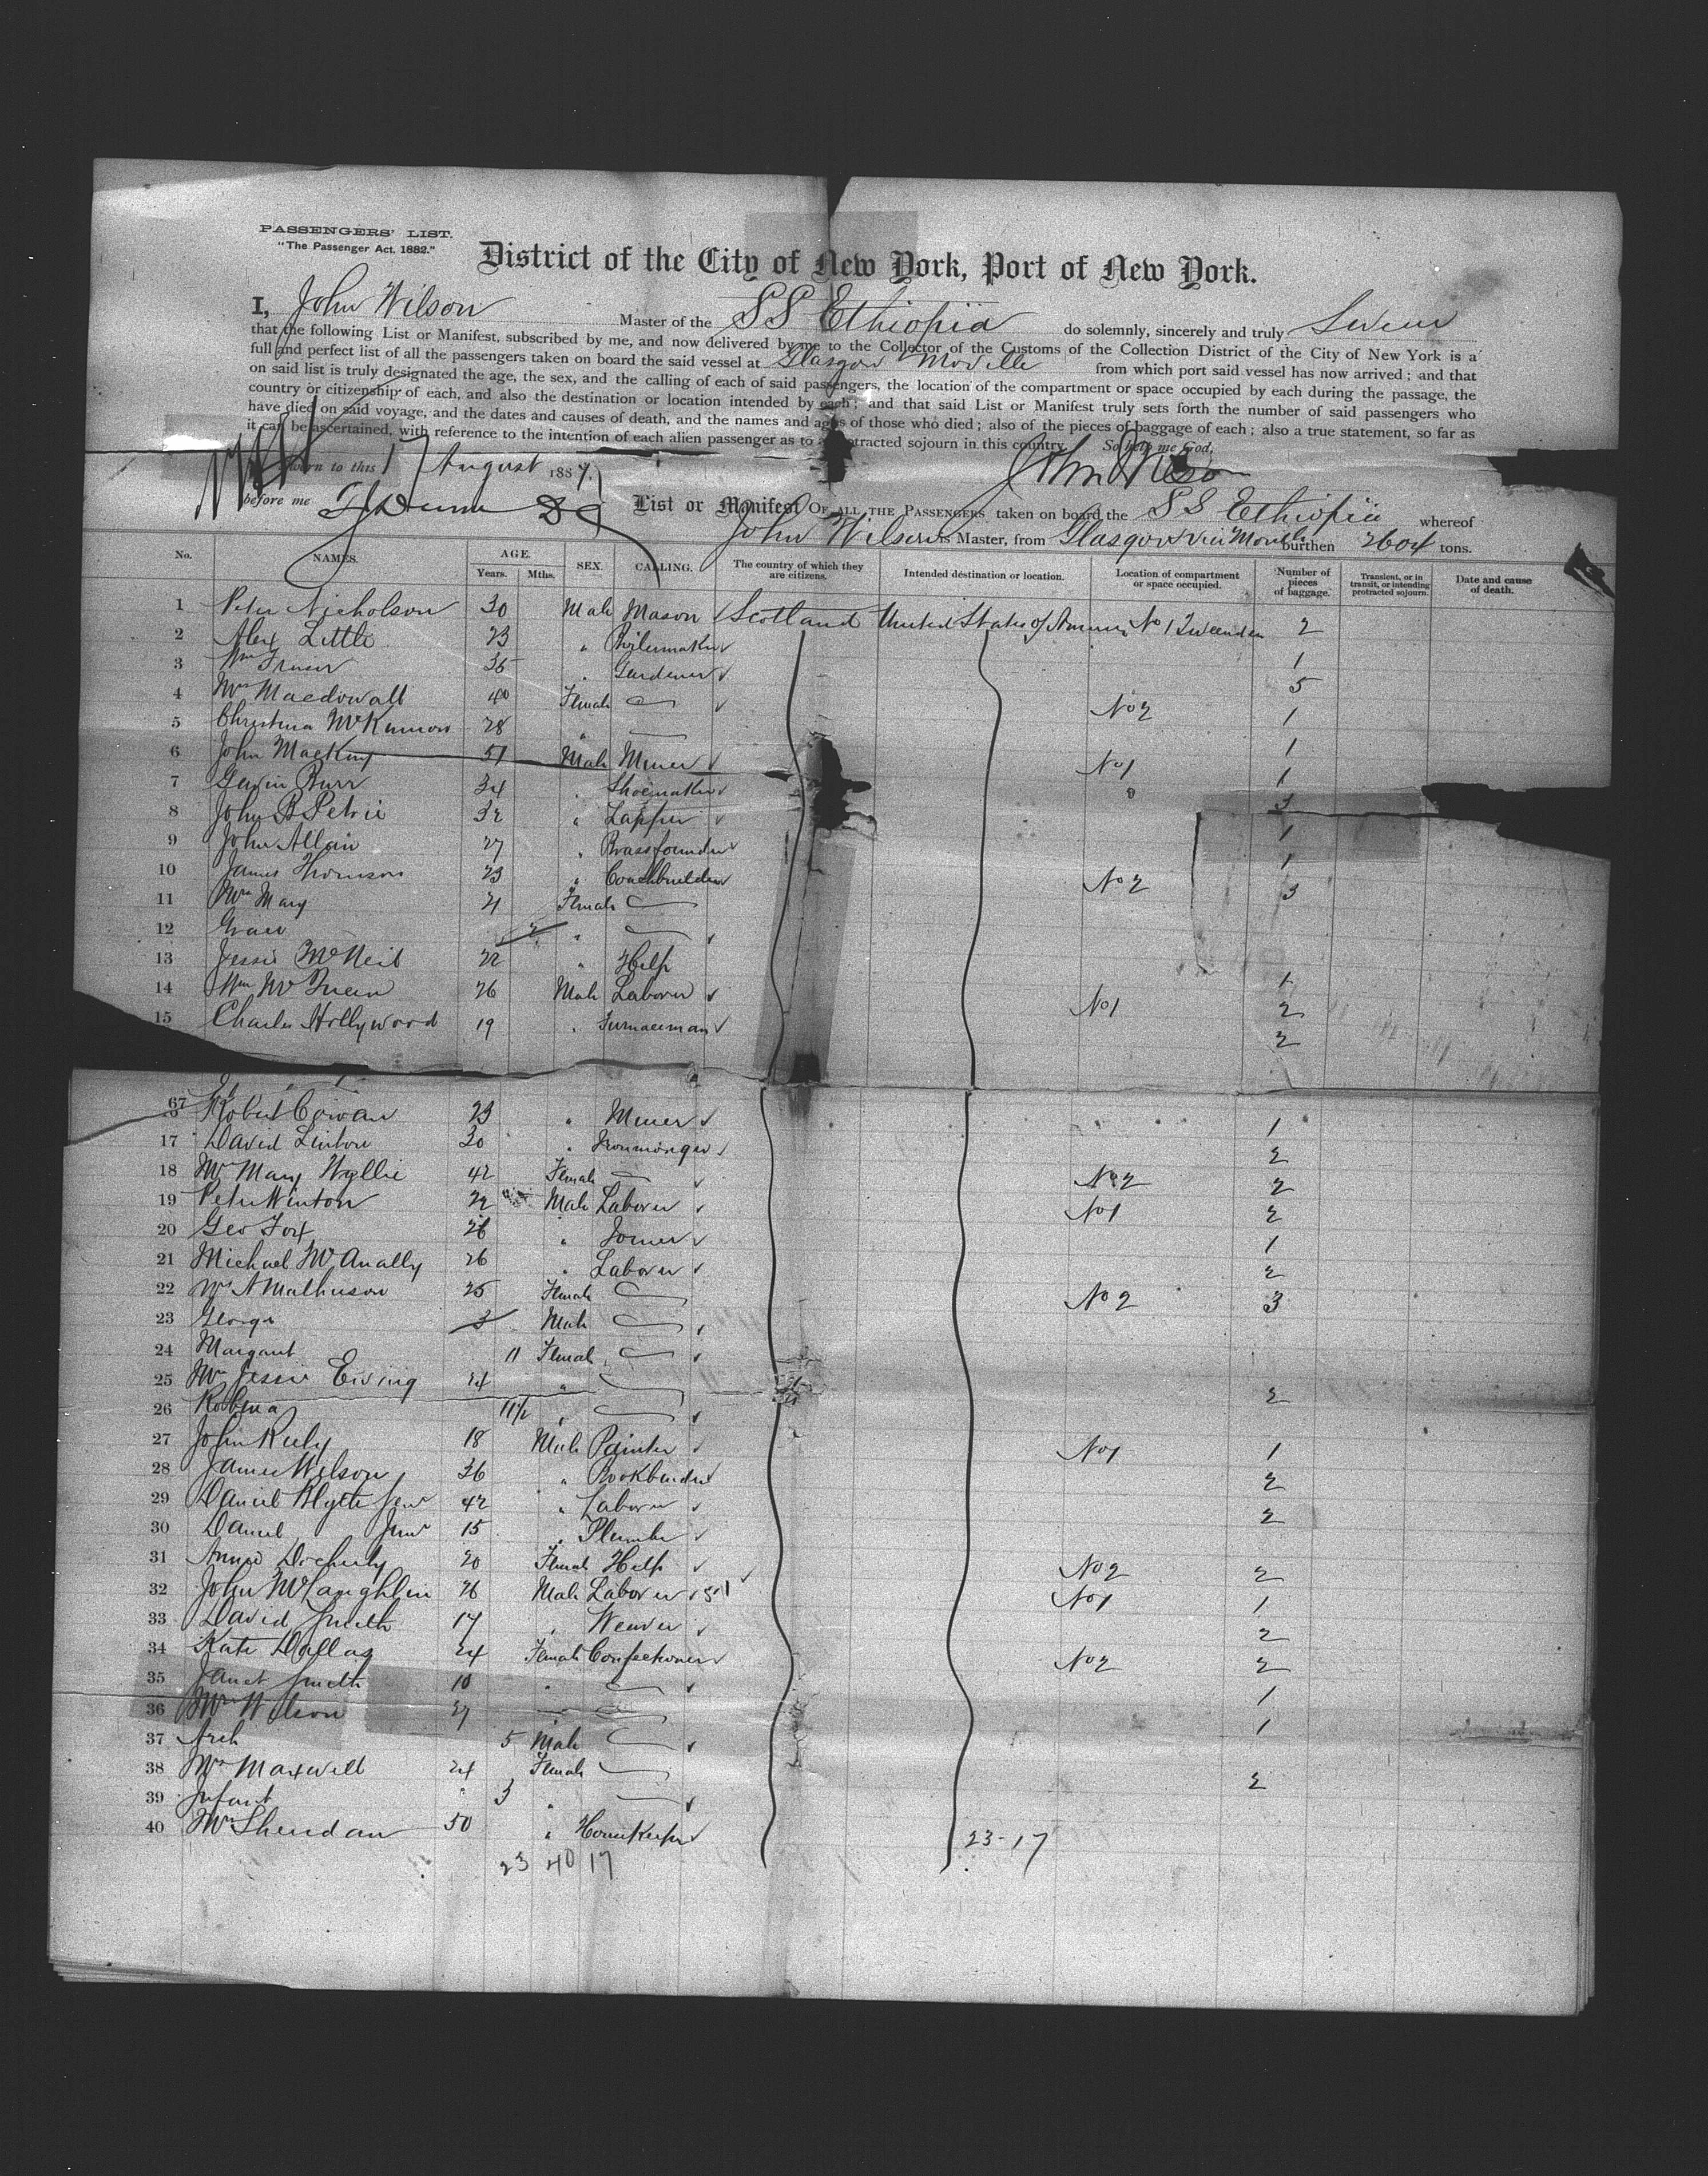 PASSENGERS' LIST.
"The Passenger Act. 1882."
District of the City of New York, Port of New York.
I, John Wilson Master of the SS Ethiopia do solemnly, sincerely and truly Swear
that the following List or Manifest, subscribed by me, and now delivered by me to the Collector of the Customs of the Collection District of the City of New York is a
full and perfect list of all the passengers taken on board the said vessel at Glasgow Moville from which port said vessel has now arrived; and that
on said list is truly designated the age, the sex, and the calling of each of said passengers, the location of the compartment or space occupied by each during the passage, the
country or citizenship of each, and also the destination or location intended by each; and that said List or Manifest truly sets forth the number of said passengers who
have died on said voyage, and the dates and causes of death, and the names and ages of those who died; also of the pieces of baggage of each; also a true statement, so far as
it can be ascertained, with reference to the intention of each alien passenger as to a protracted sojourn in this country. So help me God.
Sworn to this 17 August 1887 John Wilson
before me
List or Manifest OF ALL THE PASSENGERS taken on board the SS Ethiopia whereof
John Wilson is Master, from Glasgow via Moville burthen 2604 tons.
No. NAMES. AGE. Years. Mths. SEX. CALLING. The country of which they are citizens. Intended destination or location. Location of compartment or space occupied. Number of pieces of baggage. Transient, or in transit, or intending protracted sojourn. Date and cause of death.
1 Peter Nicholson 30 Male Mason Scotland United States of America No 1 Tweendeck 2
2 Alex Little 23 " Boilermaker 1
3 Wm 35 " Gardener 5
4 Mrs Macdowall 40 Female No 2 1
5 Christina McKinnon 28 " 1
6 John Mackay 51 Male Miner No 1 1
7 Gavin Burr 34 " Shoemaker 3
8 John B Petrie 32 " Lapper 1
9 John Allan 27 " Brassfounder 1
10 James Thomson 23 " Coachbuilder No 2 3
11 Mrs Mary 21 Female
12 Grace 2 "
13 Jessie McNeil 22 " Help 1
14 Wm McQueen 26 Male Laborer No 1 2
15 Charles Hollywood 19 " Furnaceman 2
67
Robert Cowan 23 " Miner 1
17 David Linton 30 " Ironmonger 2
18 Mrs Mary Wyllie 42 Female No 2 2
19 Peter Winton 22 Male Laborer No 1 2
20 Geo Fox 28 " Joiner 1
21 Michael McAnally 26 " Laborer 2
22 Mrs A Mathieson 25 Female No 2 3
23 George 3 Male
24 Margaret 11 Female
25 Mrs Jessie Ewing 24 " 2
26 Robina 11½ "
27 John Riely 18 Male Painter No 1 1
28 James Wilson 36 " Bookbinder 2
29 Daniel Blyth Senr 42 " Laborer 2
30 Daniel Junr 15 " Plumber
31 Annie Docherty 20 Female Help No 2 2
32 John McLaughlin 26 Male Laborer No 1 1
33 David Smith 17 " Weaver 2
34 Kate Dallas 24 Female Confectioner No 2 2
35 Janet Smith 10 " 1
36 Mrs Wilson 27 1
37 Arch 5 Male
38 Mrs Maxwell 24 Female 2
39 Infant " 3 "
40 Mrs Sheridan 50 " Housekeeper 23-17
23 40 17